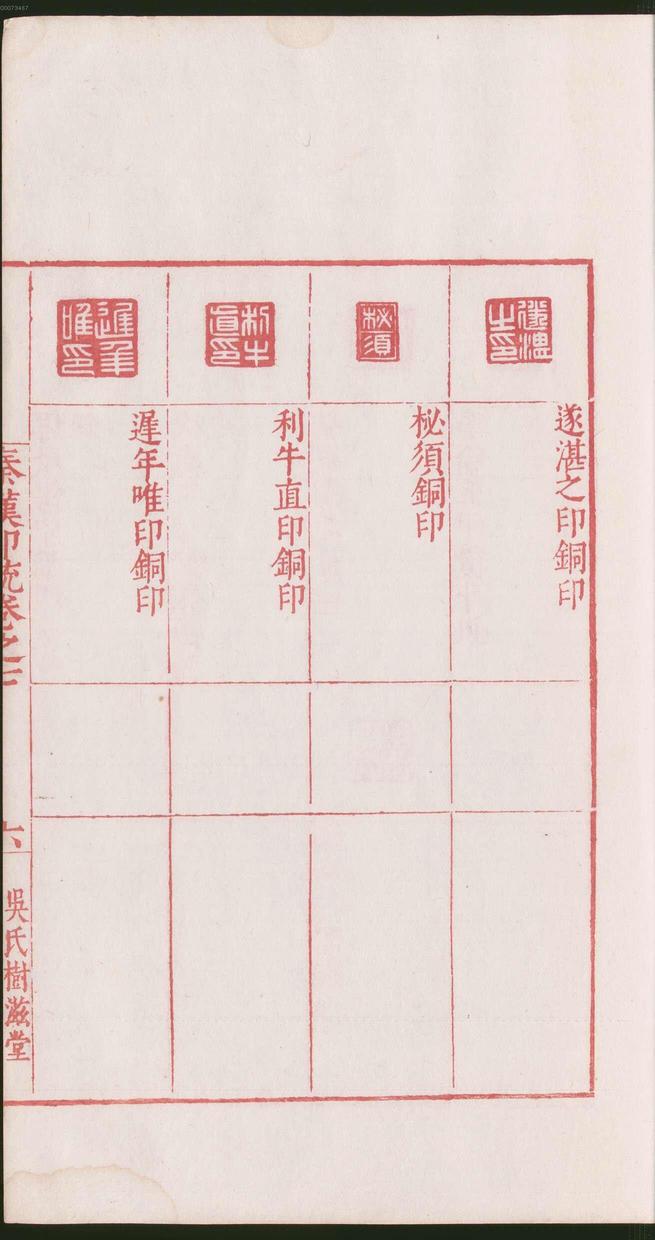 00073467
遂湛之印銅印
柲須銅印
利牛直印銅印
遟年唯印銅印
秦漢印統卷之七
六
吳氏樹滋堂